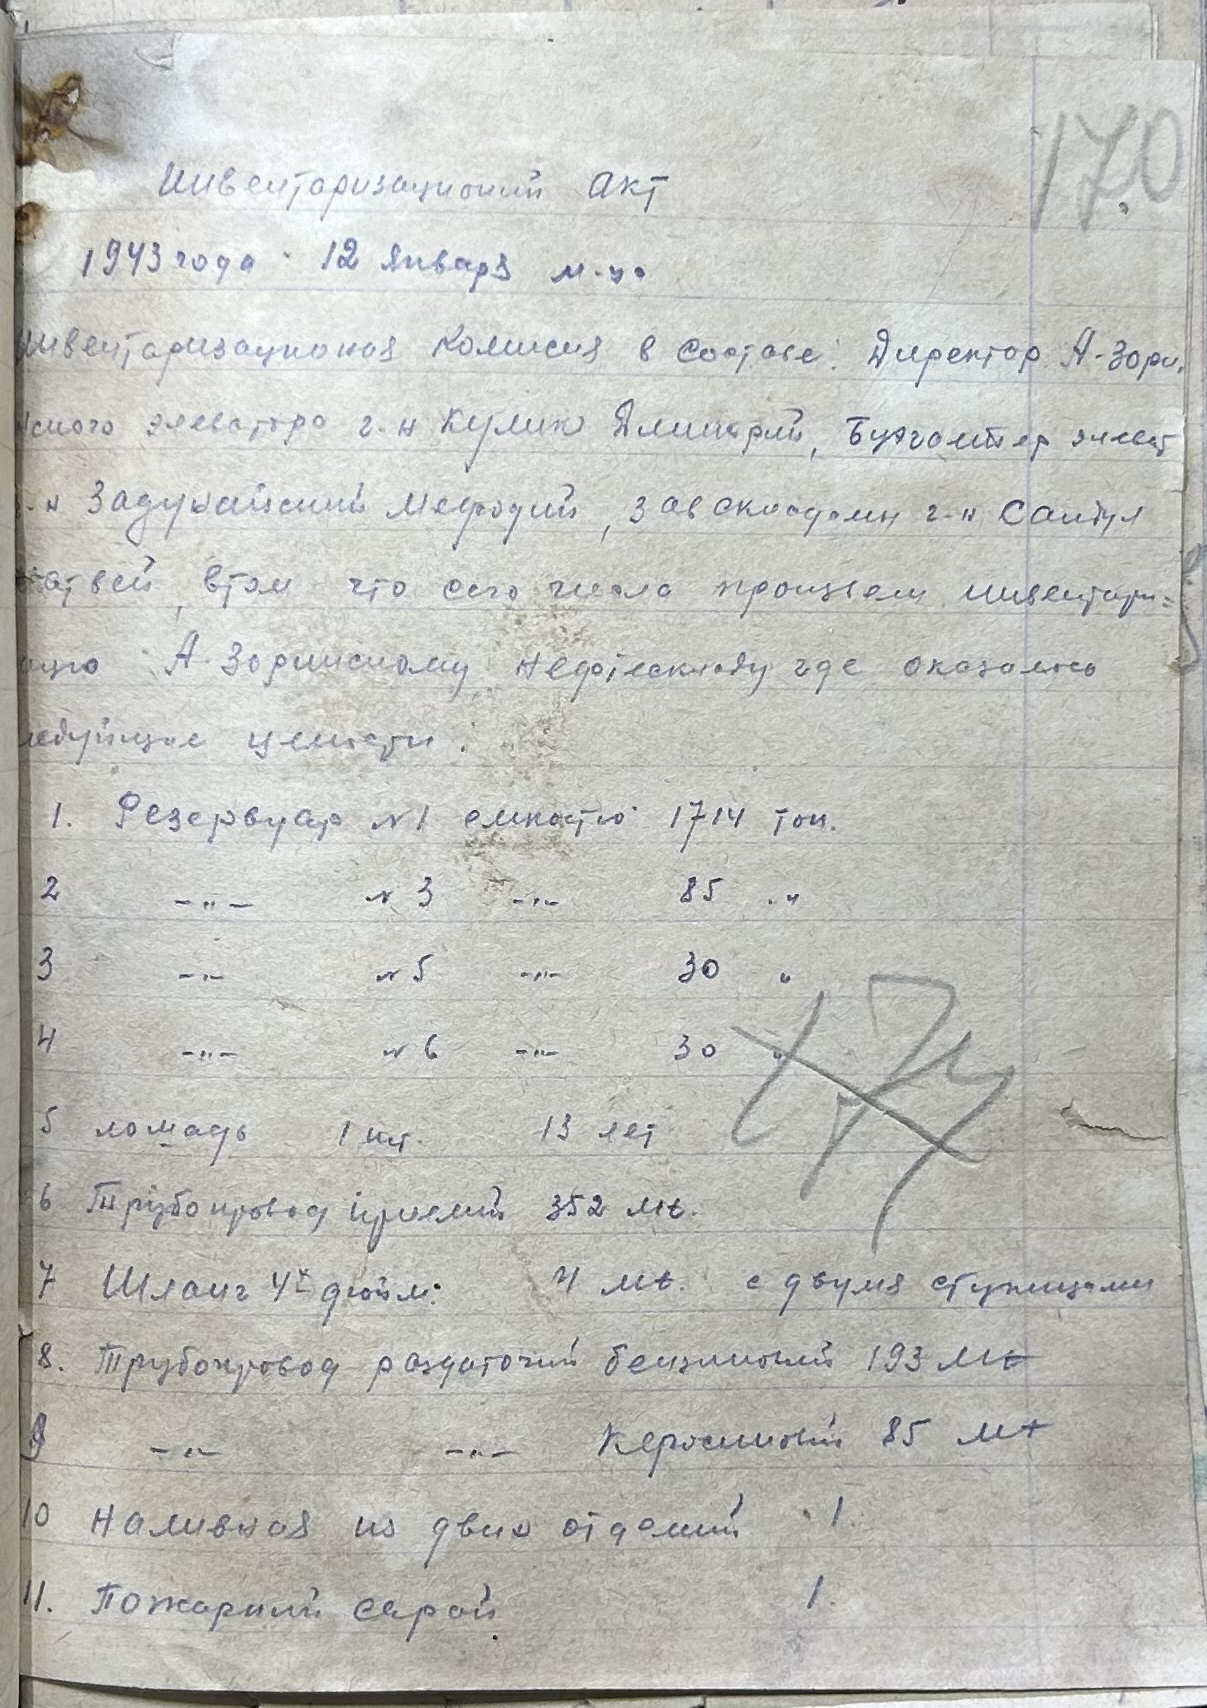 170
Инвентаризационий акт
1943 года · 12 Января м-ца
Инвентаризационая Комисия в составе: Директор А-Зори.
нского элеватора г-н Кулик Дмитрий, Бухгалтер элеват
г-н Задунайский Мефодий, Завскладами г-н
Матвей, втом что сего числа произвели инвентари=
зацию А-Зоринскому Нефтескладу где оказалось
следующие ценности:
1. Резервуар №1 емкостю 1714 тон.
2 -„- №3 -„- 85 „
3 -„- №5 -„- 30 „
4 -„- №6 -„- 30 „
5 лошадь 1 шт. 13 лет
6 Трубопровод приемий 352 мt.
7 Шланг 4х дюйм: 4 мt. с двумя ступицами
8. Трубопровод раздаточий бензиновий 193 Мt
9 -„- -„- Керосиновий 85 мt
10 Наливная из двух отделий 1.
11. Пожарний сарай 1.